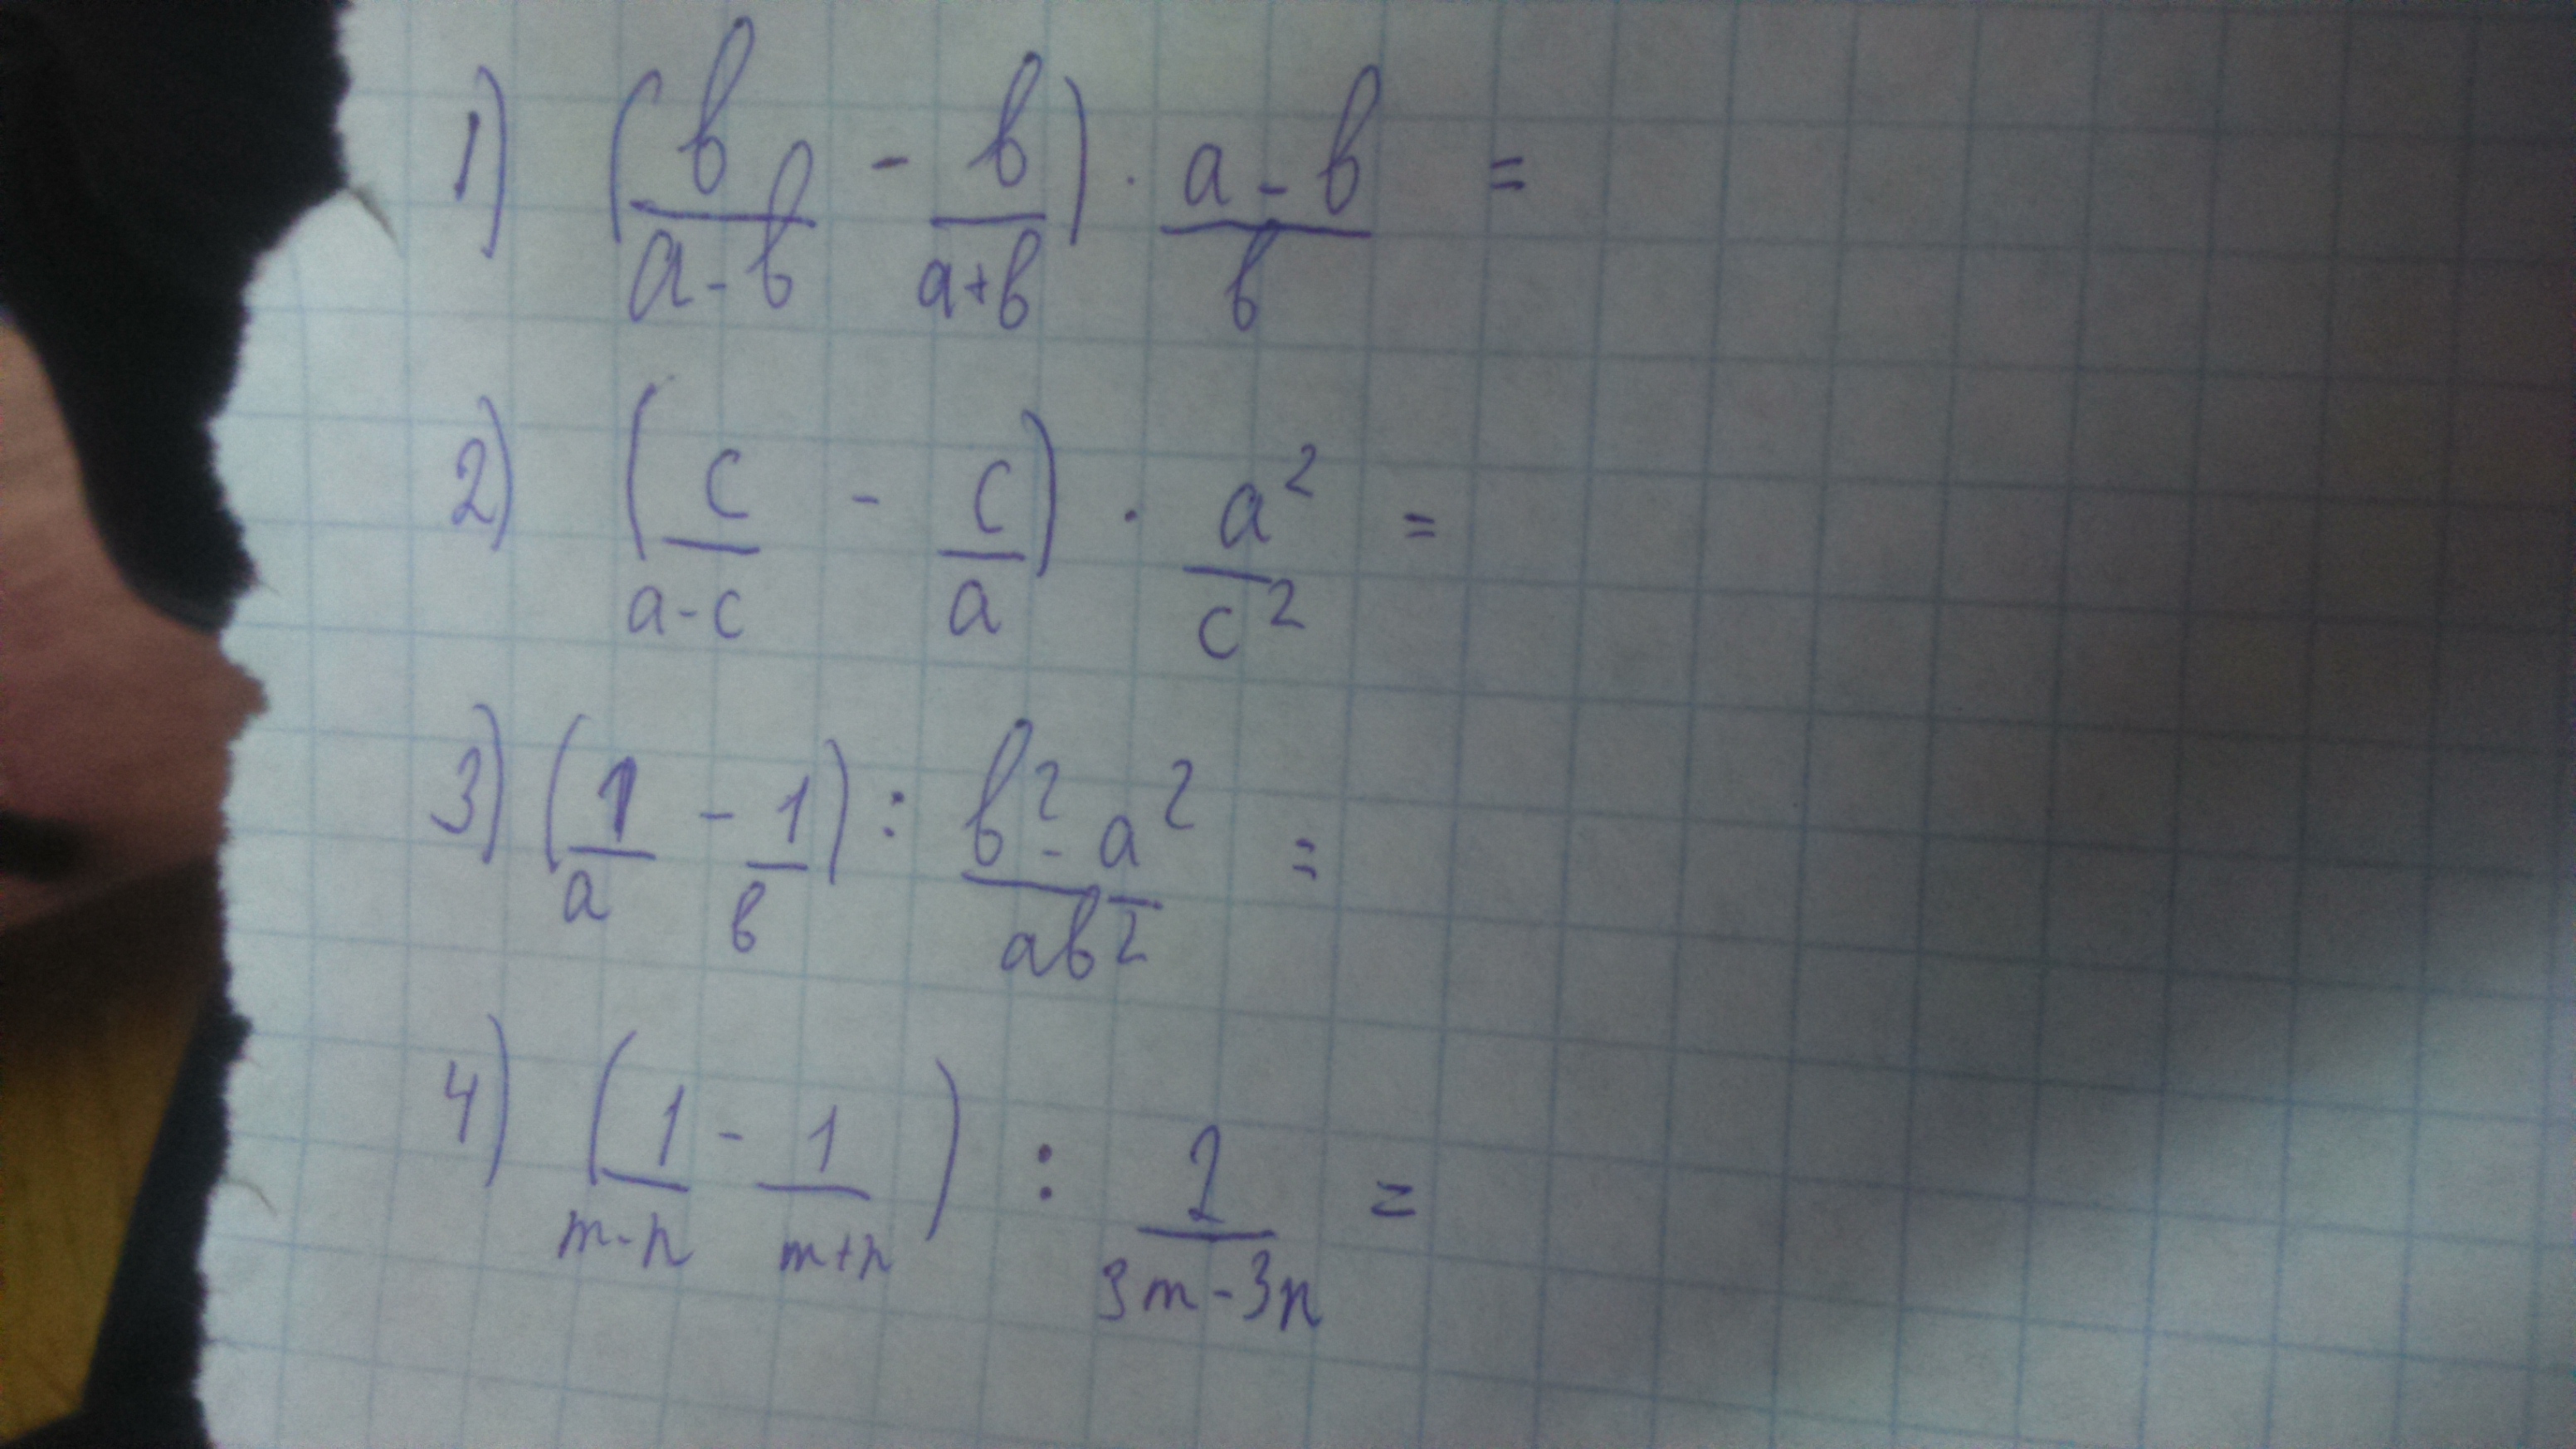 1) (b/(a-b) - b/(a+b)) · (a-b)/b =
2) (c/(a-c) - c/a) · a²/c² =
3) (1/a - 1/b) : (b²-a²)/(ab²) =
4) (1/(m-n) - 1/(m+n)) : 2/(3m-3n) =